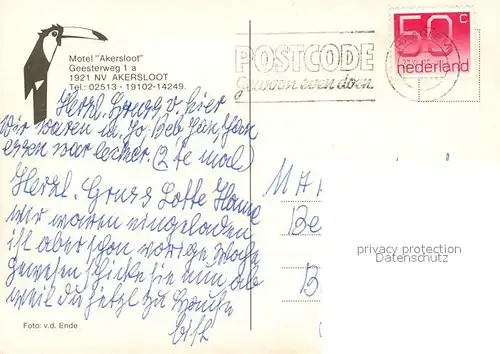 Motel "Akersloot"
Geesterweg 1 a
1921 NV AKERSLOOT
Tel.: 02513 - 19102-14249.
POSTCODE
gewoon even doen.
50 c
nederland
Herzl. Gruss v. hier
Wir waren m. Jo, Bob, Jan,
essen war lecker. (2 te mal)
Herzl. Gruss Lotte
wir waren eingeladen
ist aber schon vorige
gewesen, schicke sie nun ab
weil du jetzt zu Hause
bist
MA
Be
B
privacy protection
Datenschutz
Foto: v.d. Ende